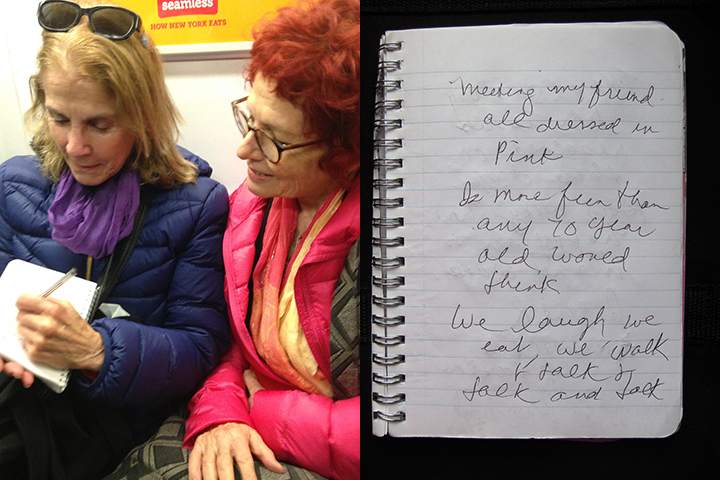 seamless
HOW NEW YORK EATS
Meeting my friend
all dressed in
Pink
Is more fun than
any 70 year
old would
think
We laugh we
eat, we walk
& talk &
talk and talk